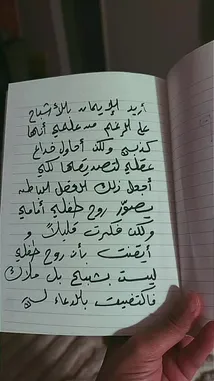 أريد الإيمان بالأشباح
على الرغم من علمي أنها
كذب ولكن أحاول خداع
عقلي لتصديقها لكي
أجعل ذلك العقل الباطن
يصوّر روح طفلي أمامي
ولكن فكرت قليلاً و
أيقنت بأن روح طفلي
ليست بشبح بل ملاك
فاكتفيت بالدعاء لي